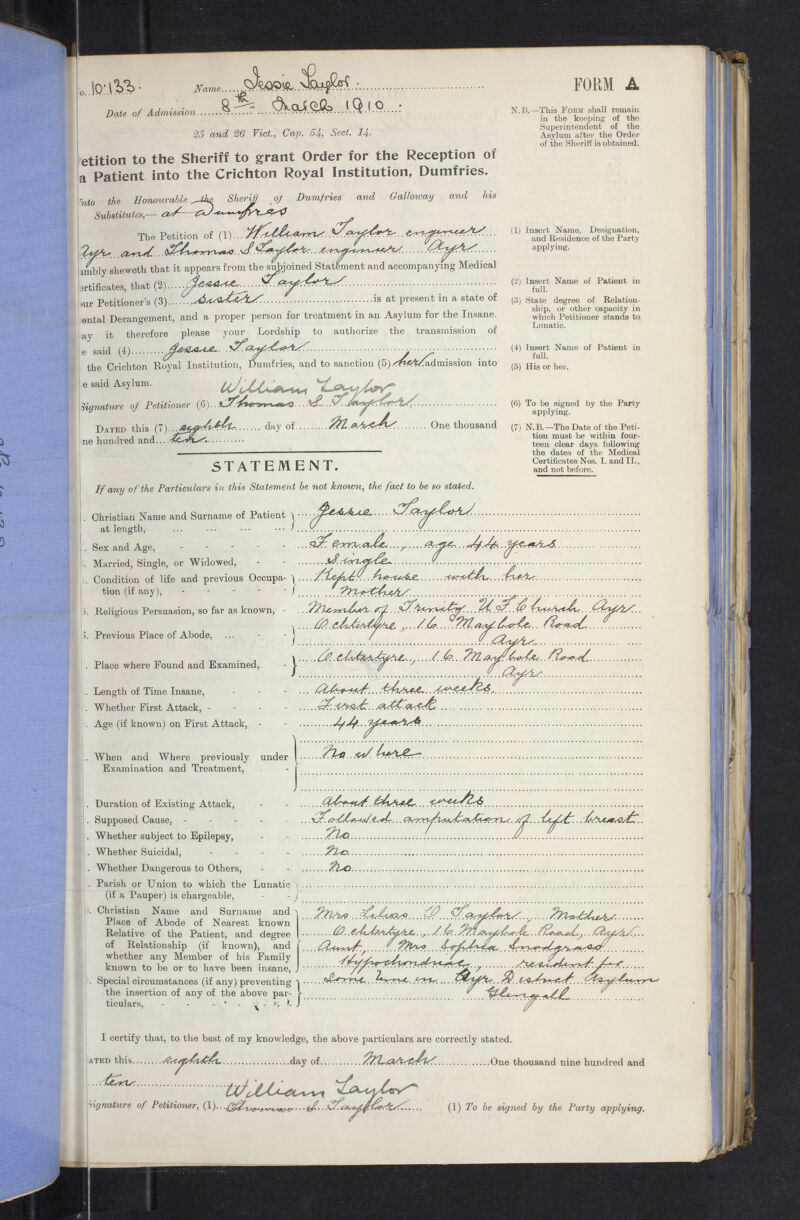 o. 10·133. Name Jessie Taylor. FORM A
Date of Admission 8th March 1910.
25 and 26 Vict., Cap. 54, Sect. 14.
N.B.—This FORM shall remain
in the keeping of the
Superintendent of the
Asylum after the Order
of the Sheriff is obtained.
etition to the Sheriff to grant Order for the Reception of
a Patient into the Crichton Royal Institution, Dumfries.
nto the Honourable the Sheriff of Dumfries and Galloway and his
Substitutes,— at Dumfries
The Petition of (1) William Taylor engineer
Ayr and Thomas S Taylor engineer Ayr
(1) Insert Name, Designation,
and Residence of the Party
applying.
umbly sheweth that it appears from the subjoined Statement and accompanying Medical
ertificates, that (2) Jessie Taylor
(2) Insert Name of Patient in
full.
our Petitioner's (3) sister is at present in a state of
(3) State degree of Relation-
ship, or other capacity in
which Petitioner stands to
Lunatic.
ental Derangement, and a proper person for treatment in an Asylum for the Insane.
ay it therefore please your Lordship to authorize the transmission of
e said (4) Jessie Taylor
(4) Insert Name of Patient in
full.
the Crichton Royal Institution, Dumfries, and to sanction (5) her admission into
(5) His or her.
e said Asylum.
William Taylor
Signature of Petitioner (6) Thomas S Taylor
(6) To be signed by the Party
applying.
DATED this (7) eighth day of March One thousand
ne hundred and ten
(7) N.B.—The Date of the Peti-
tion must be within four-
teen clear days following
the dates of the Medical
Certificates Nos. I. and II.,
and not before.
STATEMENT.
If any of the Particulars in this Statement be not known, the fact to be so stated.
. Christian Name and Surname of Patient Jessie Taylor
at length, ... ... ... ...
. Sex and Age, - - - - - Female, age 44 years
. Married, Single, or Widowed, - - Single
. Condition of life and previous Occupa- Kept house with her
tion (if any), - - - - - Mother
. Religious Persuasion, so far as known, - Member of Trinity U F Church Ayr
. Previous Place of Abode, ... - Ochtertyre, 16 Maybole Road
Ayr
. Place where Found and Examined, - Ochtertyre, 16 Maybole Road
Ayr
. Length of Time Insane, - - - About three weeks.
. Whether First Attack, - - - - First attack
. Age (if known) on First Attack, - - 44 years
. When and Where previously under No where
Examination and Treatment, - -
. Duration of Existing Attack, - - About three weeks
. Supposed Cause, - - - - - Followed amputation of left breast
. Whether subject to Epilepsy, - - No
. Whether Suicidal, - - - - No
. Whether Dangerous to Others, - - No
. Parish or Union to which the Lunatic
(if a Pauper) is chargeable, - -
. Christian Name and Surname and Mrs Lilias D Taylor, Mother
Place of Abode of Nearest known
Relative of the Patient, and degree Ochtertyre, 16 Maybole Road, Ayr
of Relationship (if known), and Aunt, Mrs Sophia Snodgrass
whether any Member of his Family Hypochondriac, resident for
known to be or to have been insane,
. Special circumstances (if any) preventing some time in Ayr District Asylum
the insertion of any of the above par- Glengall
ticulars, - - - - - -
I certify that, to the best of my knowledge, the above particulars are correctly stated.
ATED this eighth day of March One thousand nine hundred and
ten
William Taylor
Signature of Petitioner, (1) Thomas S Taylor (1) To be signed by the Party applying.